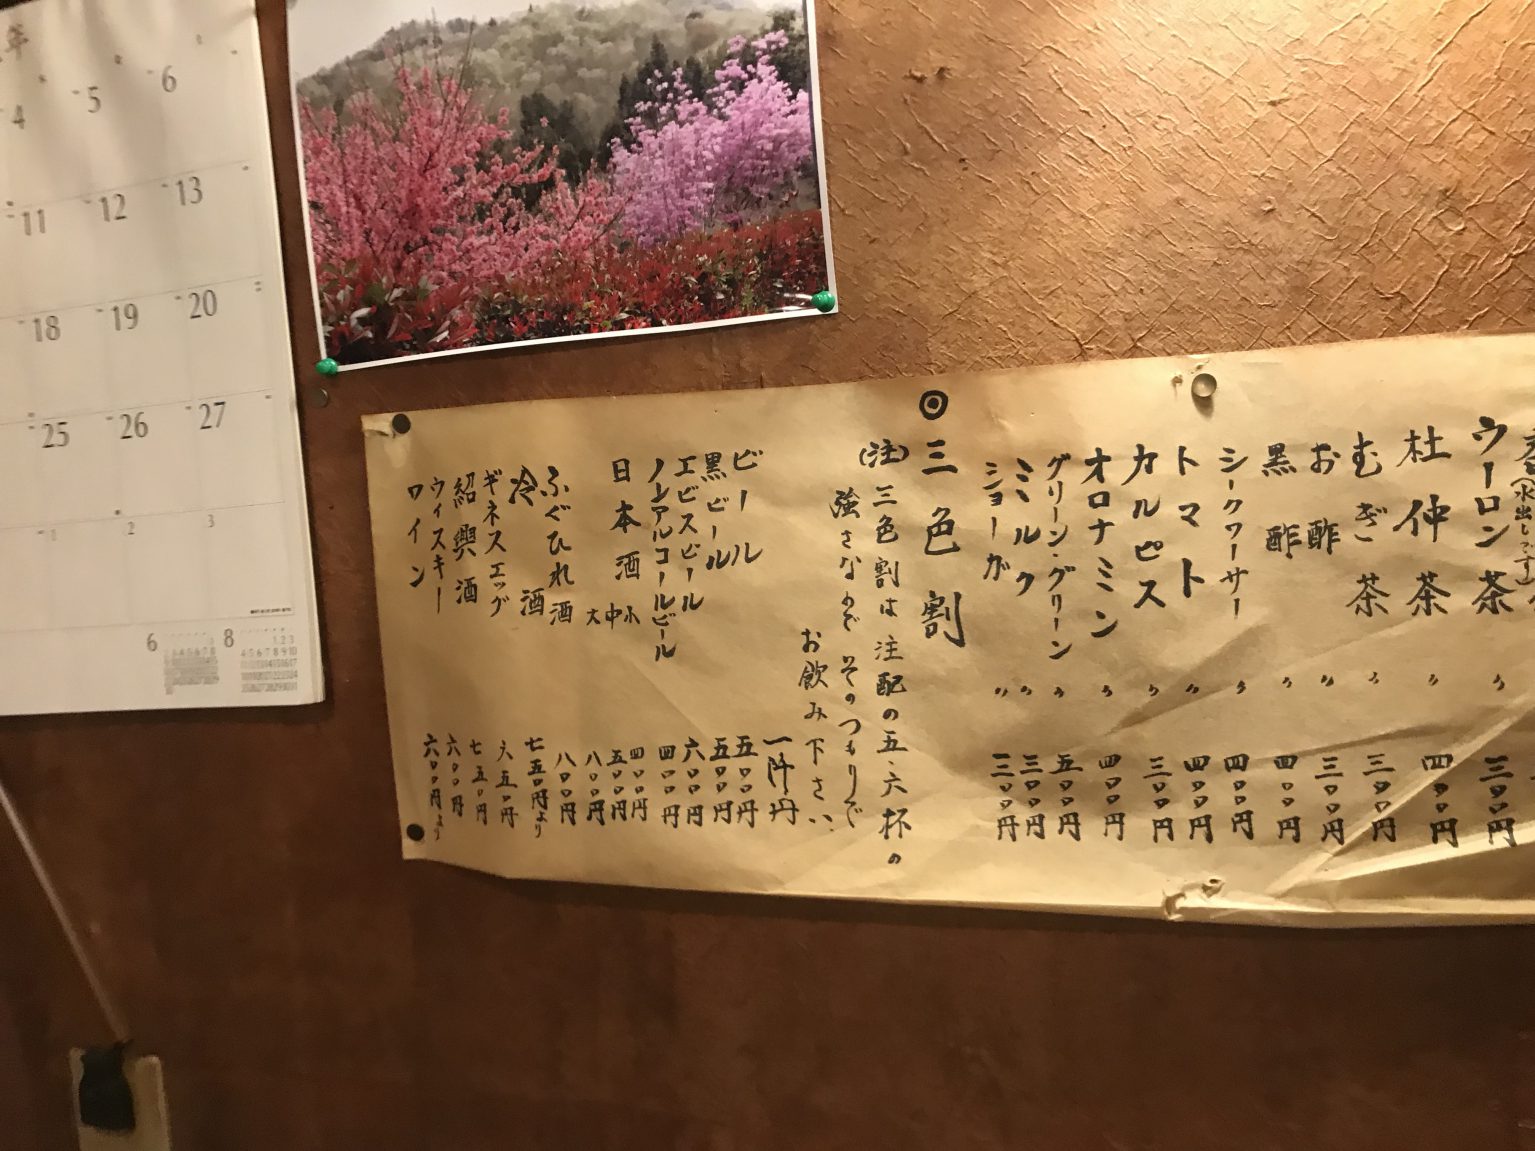 ウーロン茶 〃 三〇〇円
杜仲茶 〃 四〇〇円
むぎ茶 〃 三〇〇円
お酢 〃 三〇〇円
黒酢 〃 四〇〇円
シークワーサー 〃 四〇〇円
トマト 〃 四〇〇円
カルピス 〃 三〇〇円
オロナミン 〃 四〇〇円
グリーン・グリーン 〃 五〇〇円
ミルク 〃 三〇〇円
ショーガ 〃 三〇〇円
◎三色割
(注)三色割は注配の五・六杯の
強さなので そのつもりで
お飲み下さい
一阡円
ビール 五〇〇円
黒ビール 五〇〇円
エビスビール 六〇〇円
ノンアルコールビール 四〇〇円
日本酒 小 四〇〇円
中 五〇〇円
大 八〇〇円
ふぐひれ酒 八〇〇円
冷酒 七五〇円より
ギネスエッグ 六五〇円
紹興酒 七五〇円
ウィスキー 六〇〇円
ワイン 六〇〇円より
年
4 5 6
11 12 13
18 19 20
25 26 27
1 2 3
6 8